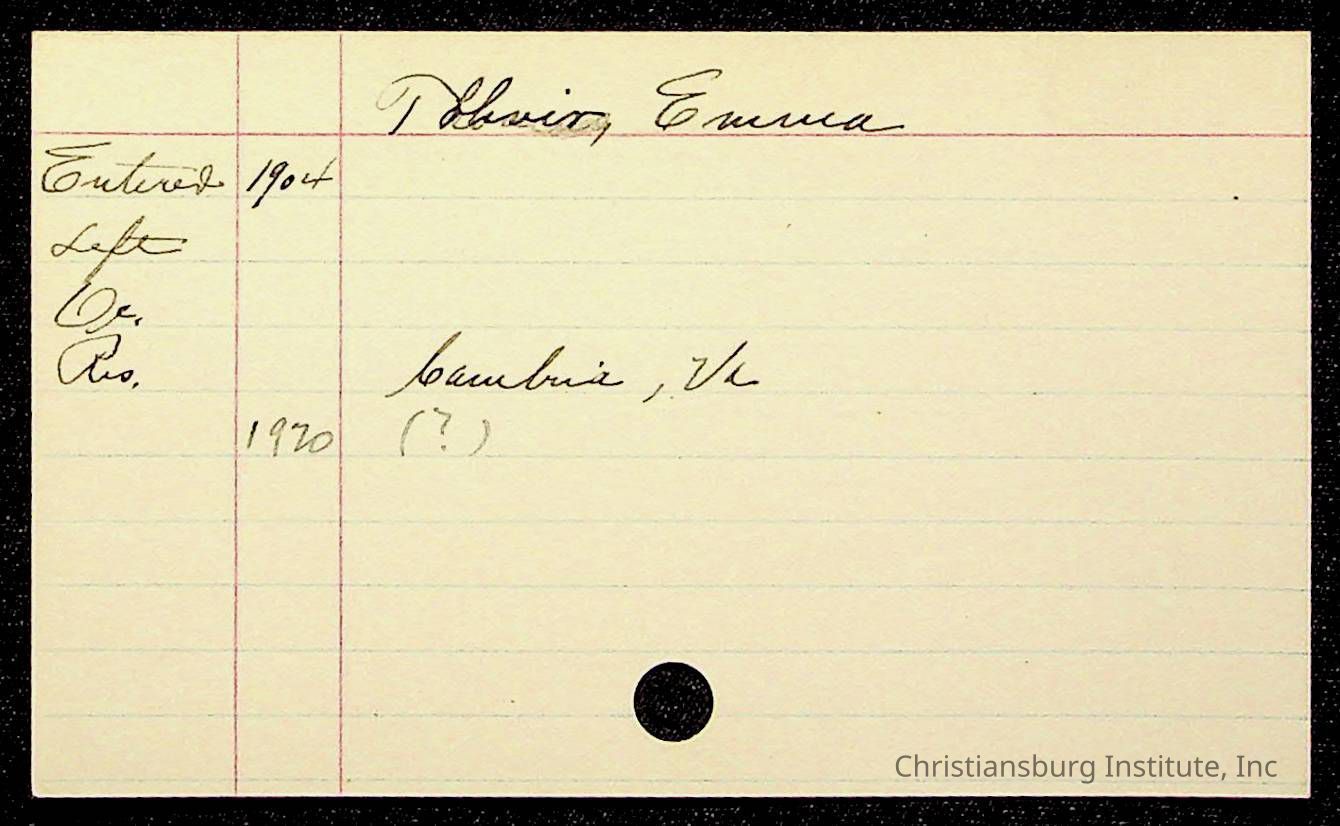 Emma
Entered 1904
Left
Oc.
Res. Cambria, Va
1920 (?)
Christiansburg Institute, Inc